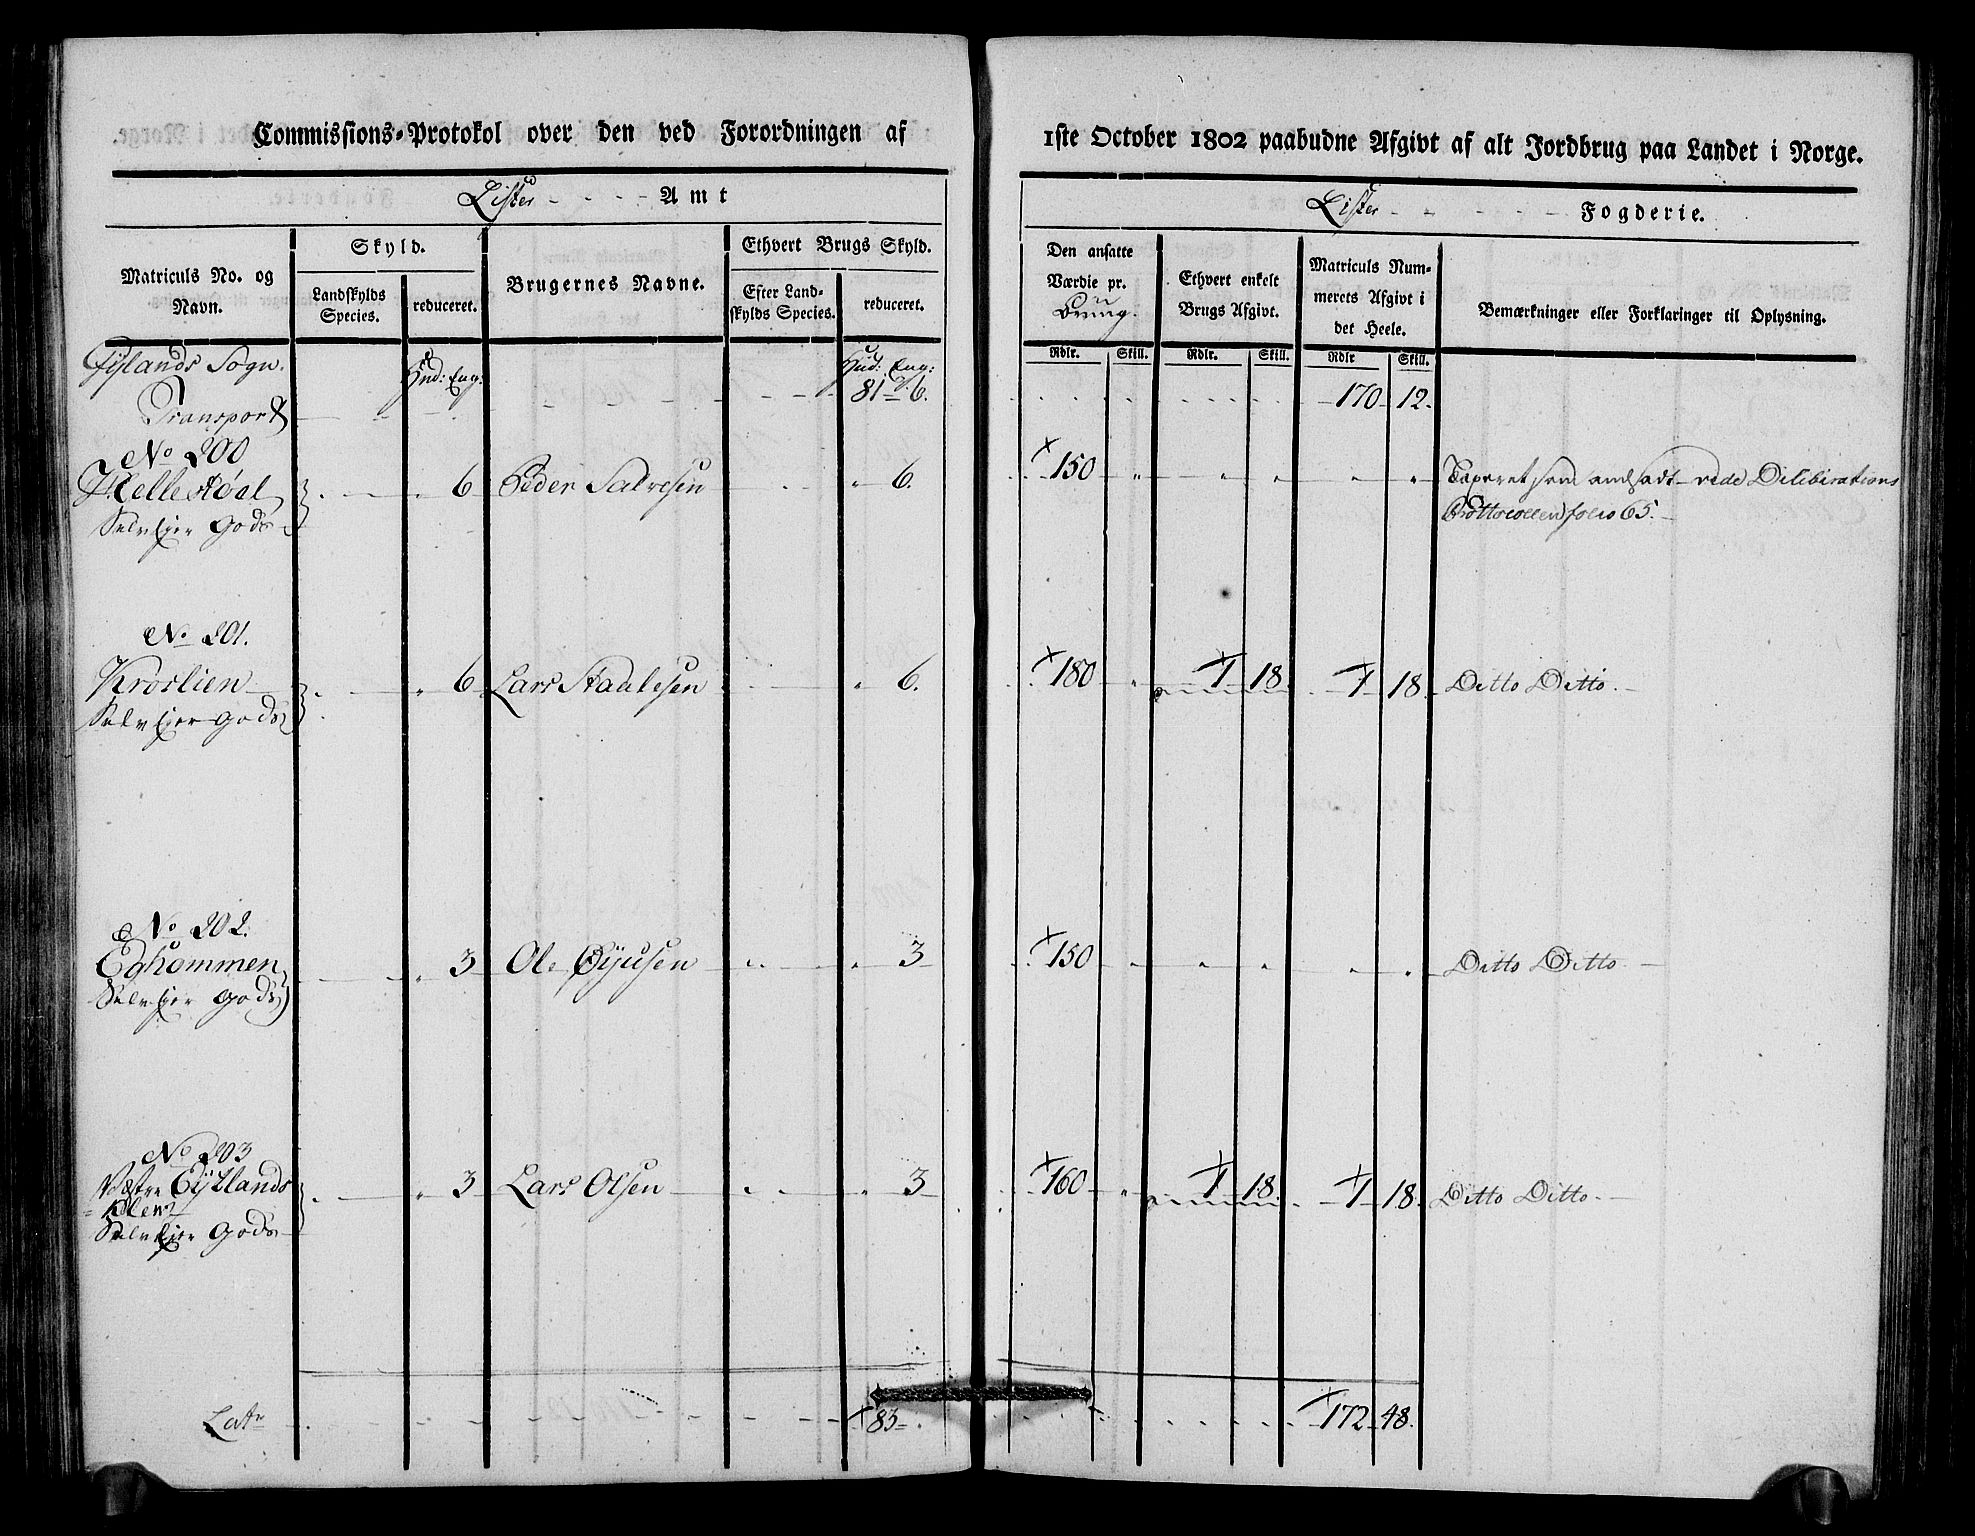 Commissions-Protokol over den ved Forordningen af
1ste October 1802 paabudne Afgivt af alt Jordbrug paa Landet i Norge.
Lister Amt
Lister Fogderie.
Matriculs No. og Navn.
Skyld.
Landskylds Species.
reduceret.
Brugernes Navne.
Ethvert Brugs Skyld.
Efter Landskylds Species.
reduceret.
Den ansatte Værdie pr. Brug.
Ethvert enkelt Brugs Afgivt.
Matriculs Nummerets Afgivt i det Heele.
Bemærkninger eller Forklaringer til Oplysning.
Rdlr. Skill. Rdlr. Skill. Rdlr Skill.
Fyslands Sogn. Hud: Eng: Hud: Eng:
Transport 81 6. 170 12.
No 200
Hellestøel 6 Peder Salvesen 6. 150 " " " " " Taxeret som andsadt vide Deliberations
Selv Ejer Gods Prottocollen folio 65.
No 201.
Kroslien 6 Lars Staalesen 6. 180 " 1 18 1 18 Ditto Ditto.
Selv Ejer Gods
No 202.
Eghommen 3 Ole 3 150 " " " " " Ditto Ditto
Selv Ejer Gods
No 203
Væstre
Selv Ejer Gods 3 Lars Olsen 3 160 " 1 18. 1 18. Ditto Ditto.
Latr 83 172 48.